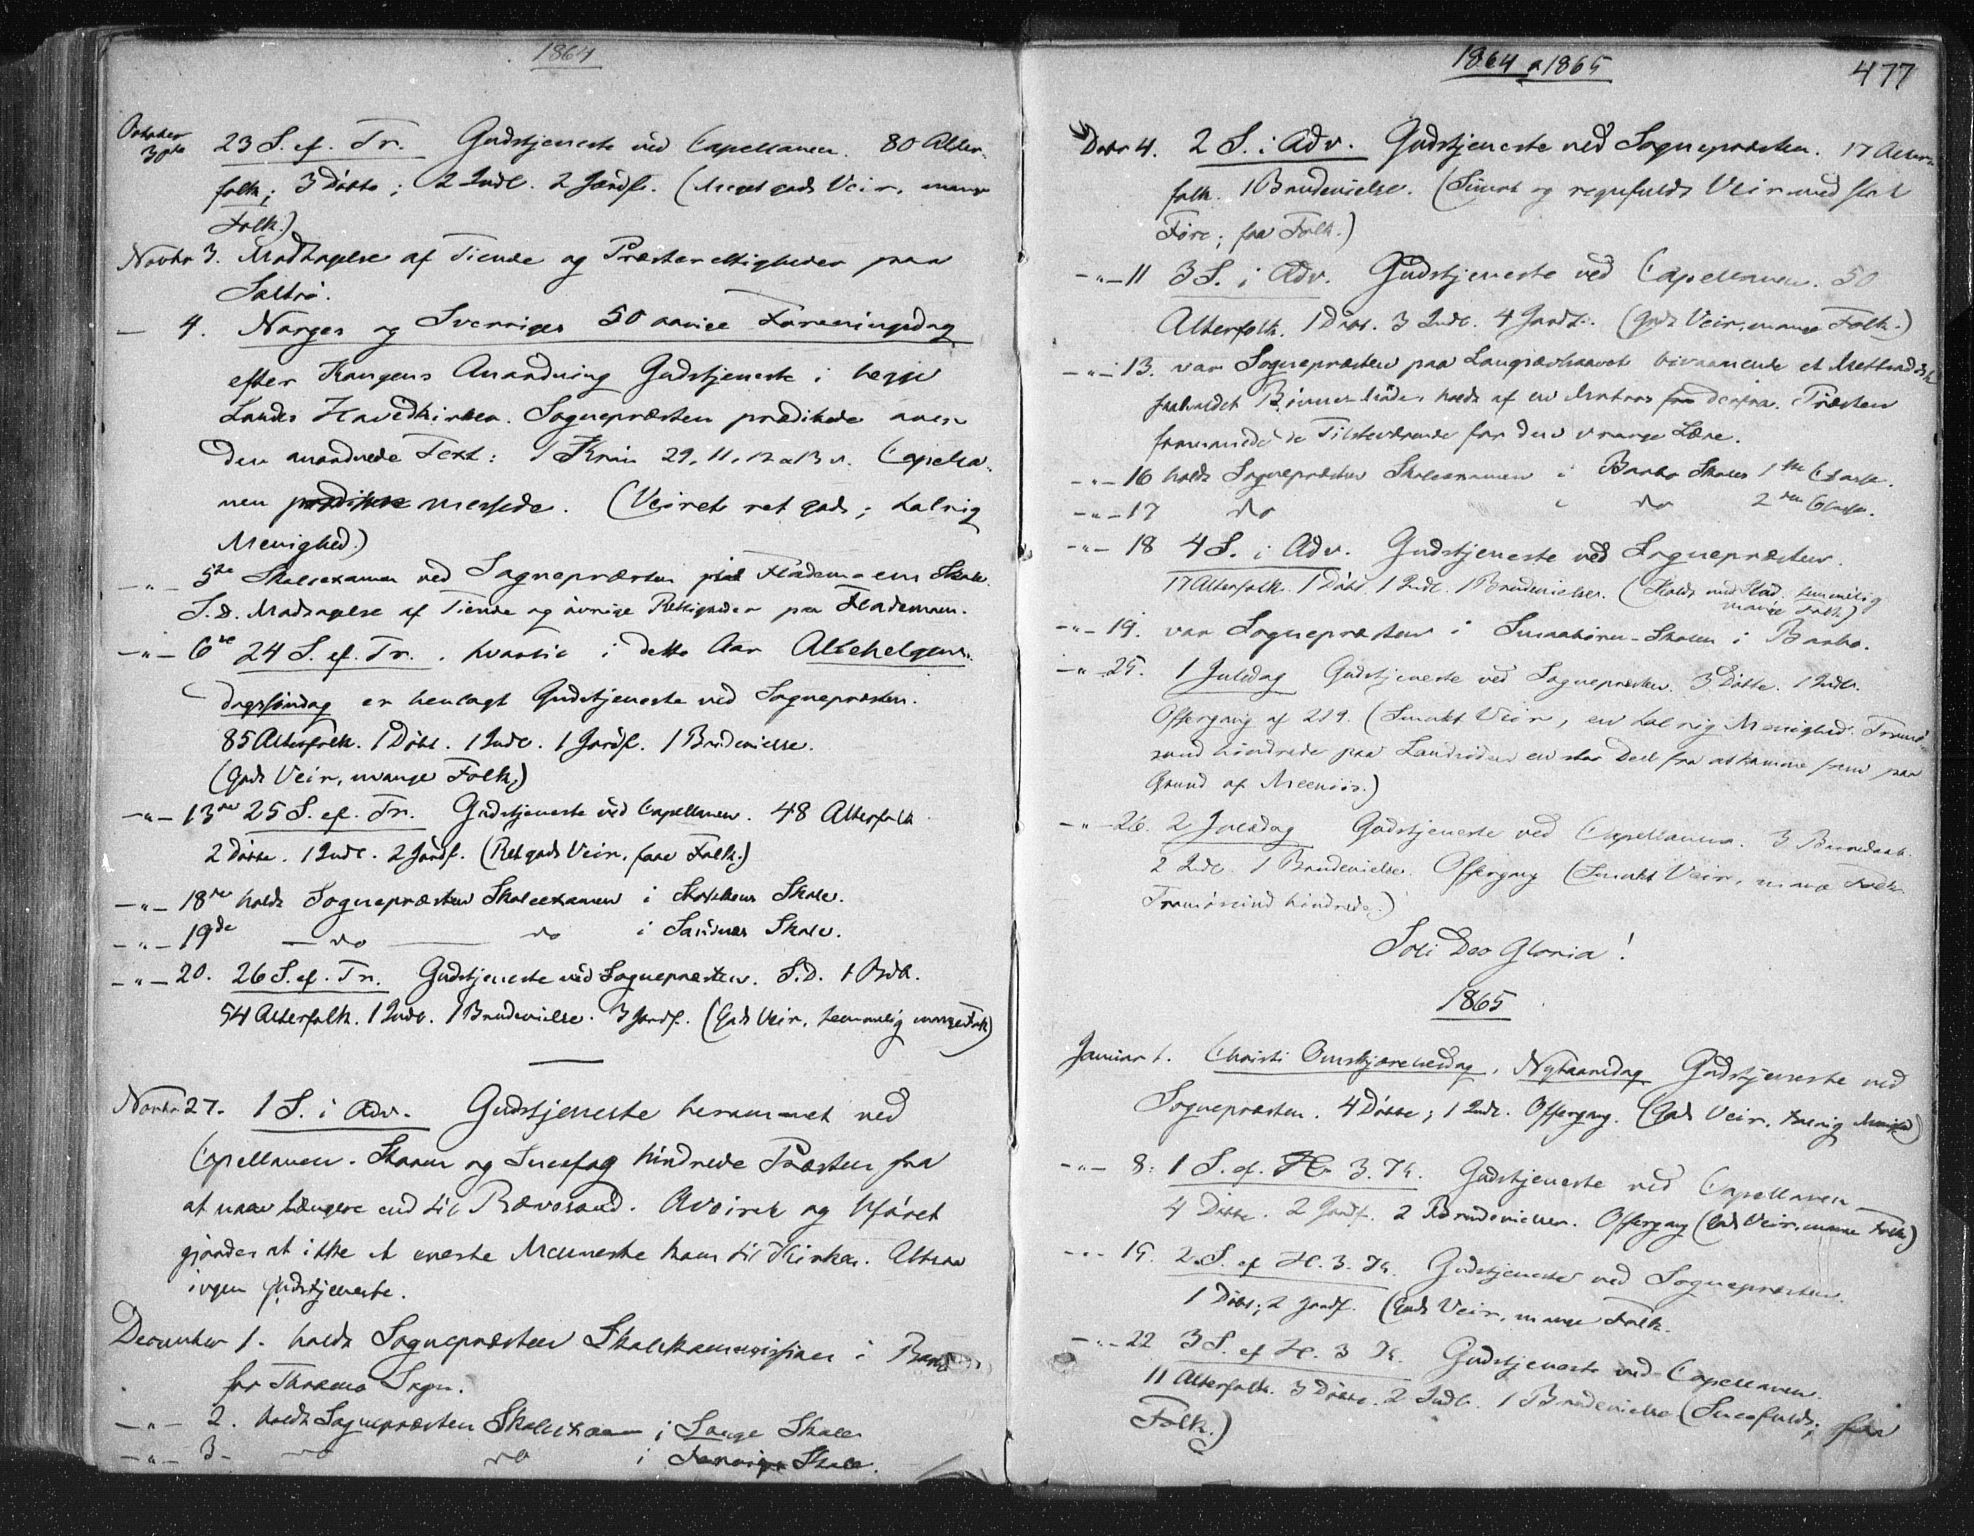 1864
October 30te 23 S. ef. Tr. Gudstjeneste ved Capellanen. 80 Alter-
folk; 3 Døbte; 2 Indl. 2 Jordf. (Meget godt Veir, mange
Folk.)
Novbr 3. Modtagelse af Tiende og Præsterettigheder paa
Saltrø.
— 4. Norges og Sverriges 50 aarige Foreningsdag
efter Kongens Anordning Gudstjeneste i begge
Landes Hovedkirker. Sognepræsten prædikede over
den anordnede Text: 1 Krøn 29, 11, 12 a 13 v. Capella-
nen prædikede messede. (Veiret ret godt; talrig
Menighed.)
— " — 5te Skoleexamen ved Sognepræsten paa Flademoens Skole.
S.D. Modtagelse af Tiende og øvrige Rettigheder paa Flademoen.
— " — 6te 24 S. ef. Tr., hvortil i dette Aar Allehelgens-
dagssøndag er henlagt Gudstjeneste ved Sognepræsten.
85 Alterfolk. 1 Døbt. 1 Indl. 1 Jordf. 1 Brudevielse.
(Godt Veir, mange Folk.)
— " — 13de 25 S. ef. Tr. Gudstjeneste ved Capellanen. 48 Alterfolk
2 Døbte. 1 Indl. 2 Jordf. (Ret godt Veir, faae Folk.)
— " — 18de holdt Sognepræsten Skoleexamen i Stokkens Skole.
— " — 19de — do — do i Sandnes Skole.
— " — 20. 26 S. ef. Tr. Gudstjeneste ved Sognepræsten. S.D. 1 Døb.
54 Alterfolk. 1 Indl. 1 Brudevielse. 3 Jordf. (Godt Veir, temmelig mange Folk)
Novbr 27. 1 S. i Adv. Gudstjeneste berammet ved
Capellanen. Storm og Snefog hindrede Præsten fra
at naae længere end til Rævesand. Aveiret og Uføret
gjorde at ikke et eneste Menneske kom til Kirken. Altsaa
ingen Gudstjeneste.
December 1. holdt Sognepræsten Skolekommission i Barbo
for Thromø Sogn.
— " — 2. holdt Sognepræsten Skoleexamen i Longe Skole
— " — 3 — do do i Skole.
1864 a 1865
477
Decbr 4. 2 S. i Adv. Gudstjeneste ved Sognepræsten. 17 Alter-
folk. 1 Brudevielse. (Surt og regnfuldt Veir med slet
Føre; faa Folk.)
— " — 11 3 S. i Adv. Gudstjeneste ved Capellanen. 50
Alterfolk. 1 Døbt. 3 Indl. 4 Jordf. (godt Veir, mange Folk.)
— " — 13. var Sognepræsten paa Langsævhaavet bivaanende et Methodistisk
saakaldet Bønnemøde, holdt af en Matros fra derfra. Præsten
formanede de Tilstedeværende for den vrange Lære.
— " — 16 holdt Sognepræsten Skoleexamen i Barbo Skoles 1ste Classe.
— " — 17 do " do 2den Classe.
— " — 18 4 S. i Adv. Gudstjeneste ved Sognepræsten.
17 Alterfolk. 1 Døbt. 1 Indl. 1 Brudevielse. (Koldt med temmelig
mange Folk)
— " — 19. var Sognepræsten i Smaabørn-Skolen i Barbo.
— " — 25. 1 Juledag Gudstjeneste ved Sognepræsten. 3 Døbte. 1 Indl.
Offergang af 219. (Smukt Veir, en talrig Menighed. Tromø-
sund hindrede paa Landsiden en stor Deel fra at komme frem paa
Grund af Meenis.)
— " — 26. 2 Juledag Gudstjeneste ved Capellanen. 3 Barnedaab
2 Indl. 1 Brudevielse. Offergang (Smukt Veir, mange Folk
Tromøsund hindrede.)
Soli Deo Gloria!
1865
Januar 1. Christi Omskjærelsesdag, Nytaarsdag Gudstjeneste ved
Sognepræsten. 4 Døbte; 1 Indl. Offergang. (Godt Veir, talrig Menighed)
— " — 8: 1 S. ef. H. 3. K. Gudstjeneste ved Capellanen
4 Døbte. 2 Jordf. 2 Brudevielser. Offergang (Godt Veir, mange Folk)
— " — 15. 2 S. ef H. 3. K. Gudstjeneste ved Sognepræsten.
1 Døbt; 2 Jordf. (Godt Veir, mange Folk.
— " — 22 3 S. ef H. 3 K. Gudstjeneste ved Capellanen.
11 Alterfolk. 3 Døbte. 2 Indl. 1 Brudevielse (Snefuldt; faa
Folk.)